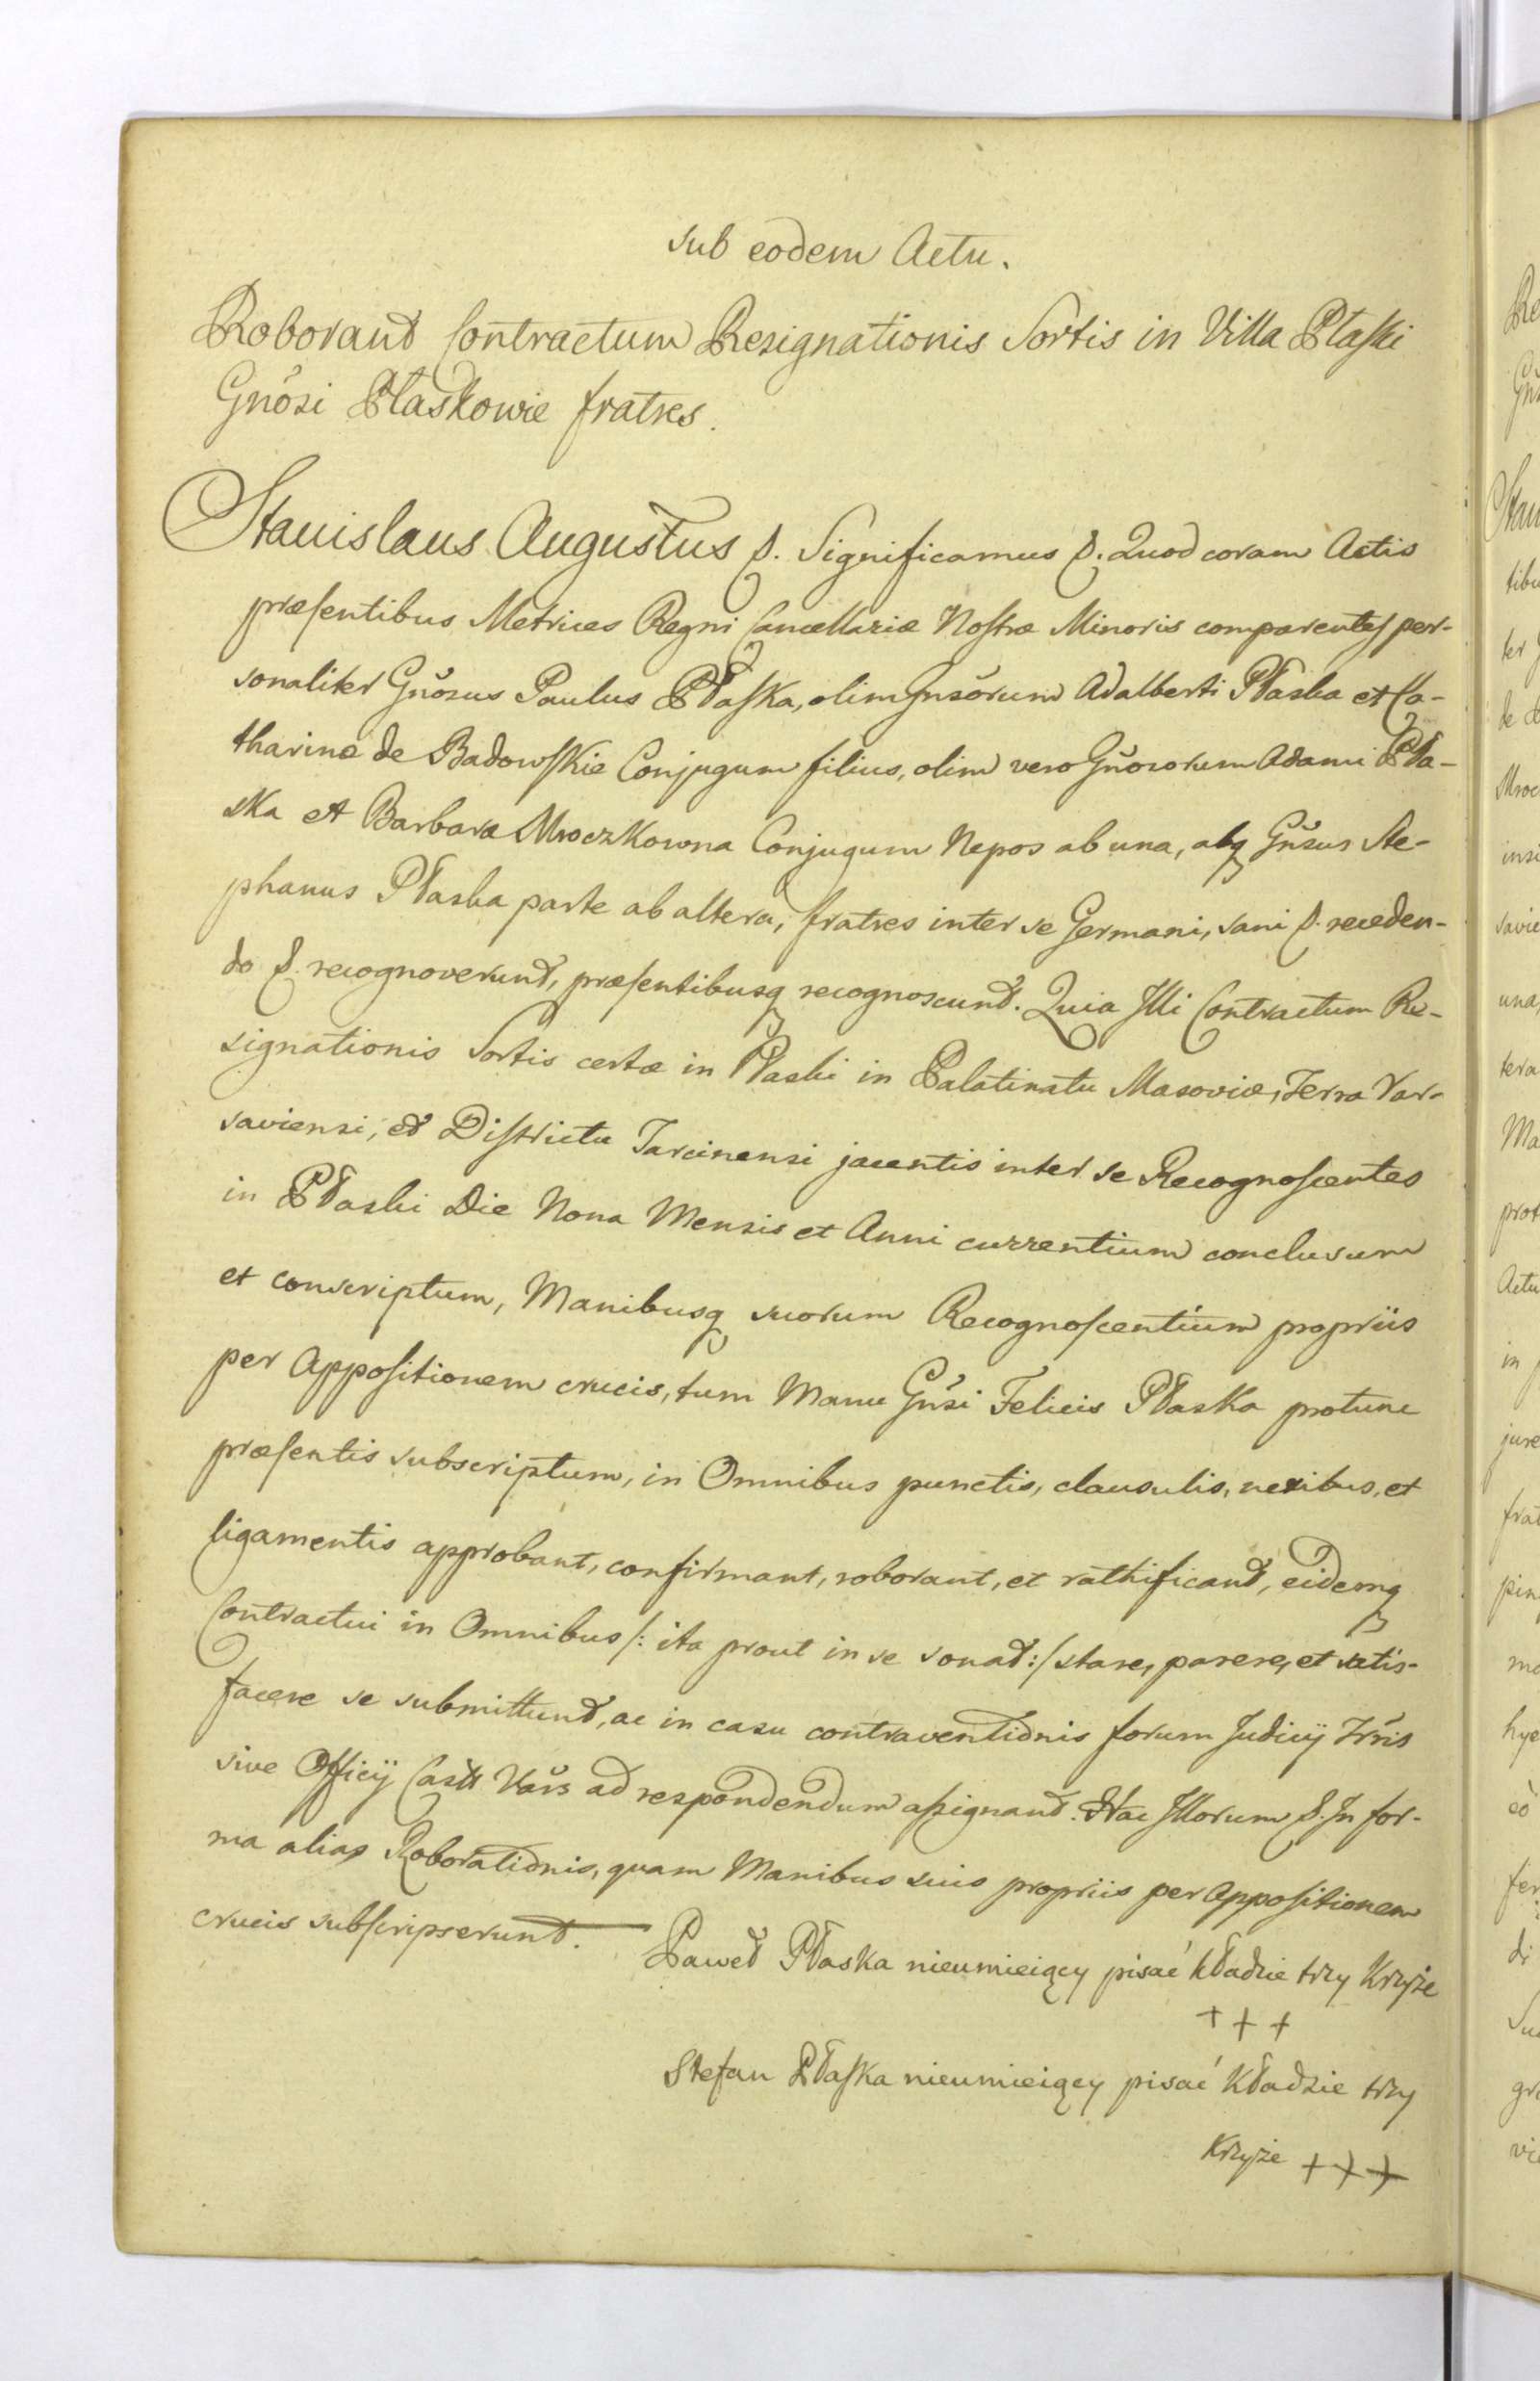 sub eodem Actu.
Roborant Contractum Resignationis Sortis in Villa Płaski
Gnősi Płaskowie fratres.
Stanislaus Augustus &. Significamus &. Quod coram Actis
præsentibus Metrices Regni Cancellariæ Nostræ Minoris comparentes per-
sonaliter Gnősus Paulus Płaska, olim Gnsőrum Adalberti Płaska et Ca-
tharinæ de Badowskie Conjugum filius, olim vero Gnősorum Adami Pła-
ska et Barbaræ Mroczkowna Conjugum Nepos ab una, atq Gnsus Ste-
phanus Płaska parte ab altera, fratres inter se Germani, sani &. receden-
do &. recognoverunt, præsentibusq recognoscunt. Quia Illi Contractum Re-
signationis Sortis certæ in Płaski in Palatinatu Masoviæ, Terra Var-
saviensi, et Districtu Tarcinensi jacentis inter se Recognoscentes
in Płaski Die Nona Mensis et Anni currentium conclusum
et conscriptum, Manibusq suorum Recognoscentium propriis
per Appositionem crucis, tum Manu Gnsi Felicis Płaska protunc
præsentis subscriptum, in Omnibus punctis, clausulis, nexibus, et
ligamentis approbant, confirmant, roborant, et rathificant, eidemq
Contractui in Omnibus /: ita prout in se sonat :/ stare, parere, et satis-
facere se submittunt, ac in casu contraventionis forum Judicij Trris
sive Officij Castr Vars ad respondendum assignant. Hac Illorum &. In for-
ma alias Roborationis, quam Manibus suis propriis per Appositionem
crucis subscripserunt.
Paweł Płaska nieumieiący pisać kładzie trzy Krzyże
+ + +
Stefan Płaska nieumieiący pisać Kładzie trzy
Krzyże + + +